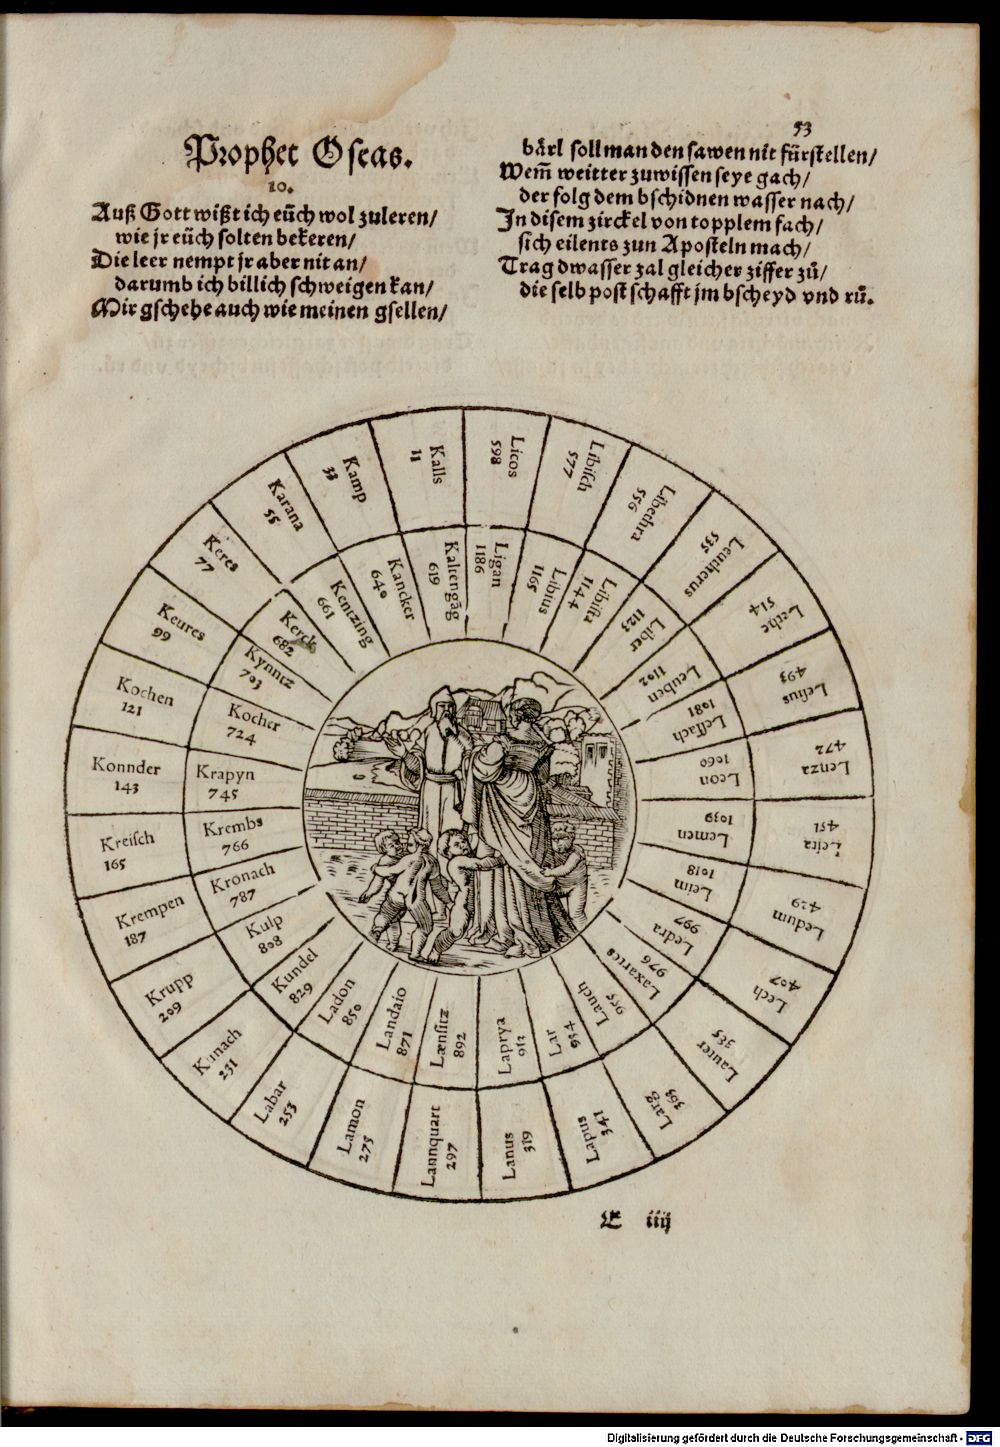 53
Prophet Oseas.
10.
Auß Gott wißt ich eüch wol zuleren/
wie jr eüch solten bekeren/
Die leer nempt jr aber nit an/
darumb ich billich schweigen kan/
Mir gschehe auch wie meinen gsellen/
bärl soll man den sawen nit fürstellen/
Wem̃ weitter zuwissen seye gach/
der folg dem bschidnen wasser nach/
In disem zirckel von topplem fach/
sich eilents zun Aposteln mach/
Trag dwasser zal gleicher ziffer zů/
die selb post schafft jm bscheyd vnd rů.
Kalls
11
Kamp
33
Karana
55
Keres
77
Keures
99
Kochen
121
Konnder
143
Kreisch
165
Krempen
187
Krupp
209
Kunach
231
Labar
253
Lamon
275
Lannquart
297
Lanus
319
Lapus
341
Larg
363
Lauter
385
Lech
407
Ledum
429
Leira
451
Lenza
472
Lesius
493
Lethe
514
Leucherus
535
Libethra
556
Libisch
577
Licos
598
Kaltengãg
619
Kancker
640
Kentzing
661
Kerck
682
Kynntz
703
Kocher
724
Krapyn
745
Krembs
766
Kronach
787
Kulp
808
Kundel
829
Ladon
850
Landaio
871
Lænsitz
892
Laprya
913
Lar
934
Lauch
955
Laxartes
976
Ledra
997
Leim
1018
Lemen
1039
Leon
1060
Lessach
1081
Leuben
1102
Liber
1123
Libista
1144
Libius
1165
Ligan
1186
L iiij
Digitalisierung gefördert durch die Deutsche Forschungsgemeinschaft - DFG